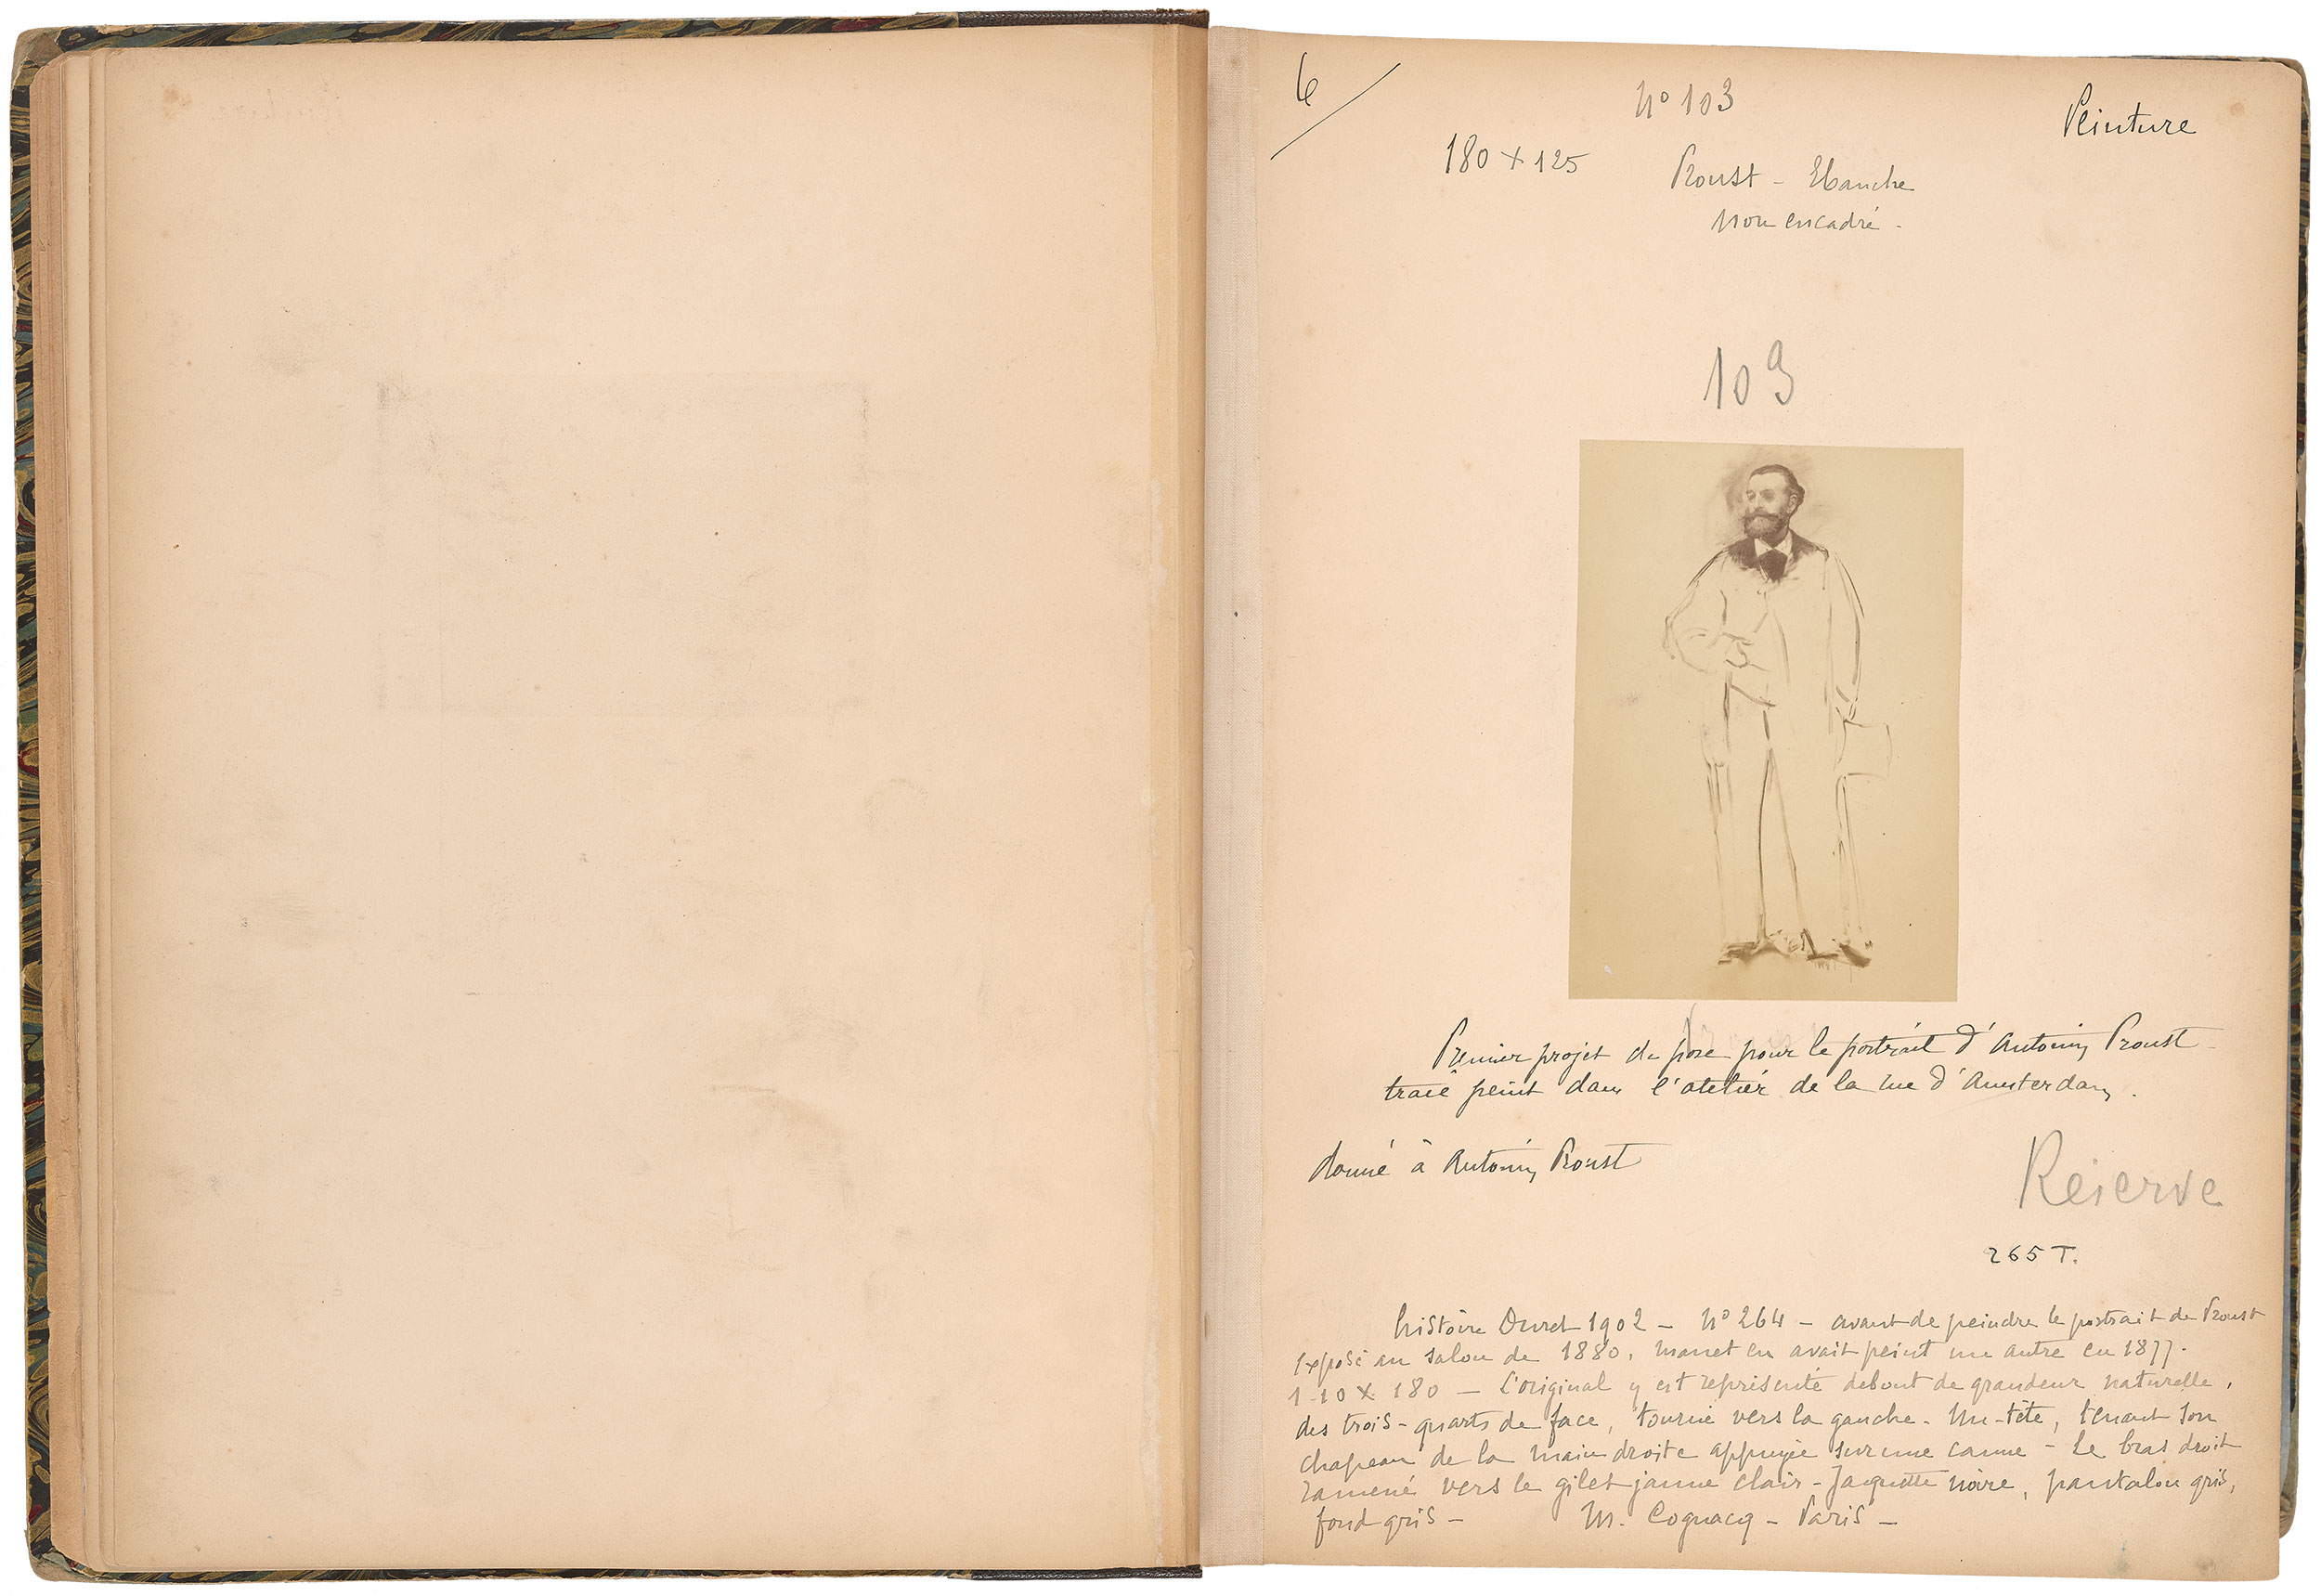 6
N° 103
Peinture
180 x 125
Proust - Ebauche
Non encadré -
103
Premier projet de pose pour le portrait d'Antonin Proust -
tracé peint dans l'atelier de la rue d'Amsterdam.
donné à Antonin Proust
Réserve
265 T.
histoire Duret 1902 - N° 264 - avant de peindre le portrait de Proust
exposé au salon de 1880, Manet en avait peint un autre en 1877.
1-10 x 180 - L'original y est représenté debout de grandeur naturelle,
des trois-quarts de face, tourné vers la gauche - Nu-tête, tenant son
chapeau de la main droite appuyée sur une canne - Le bras droit
ramené vers le gilet jaune clair - Jaquette noire, pantalon gris,
fond gris - M. Cognacq - Paris -